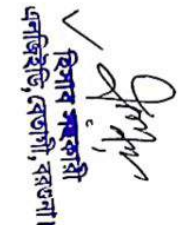 হিসাব সহকারী
এলজিইডি, বেতাগী, বরগুনা।